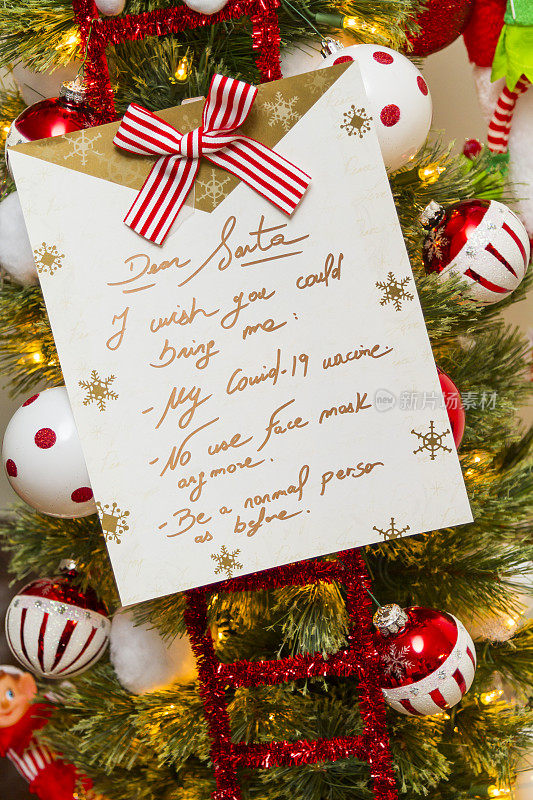 Dear Santa
I wish you could
bring me:
- My Covid-19 vaccine.
- No use face mask
anymore.
- Be a normal person
as before.
新视觉 iStock